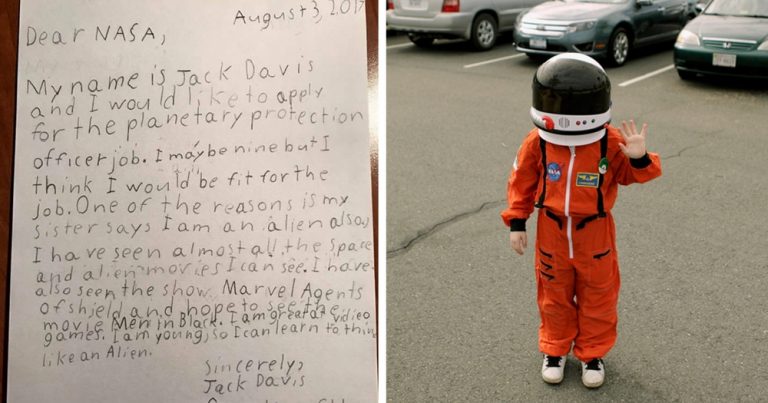 August 3, 2017
Dear NASA,
My name is Jack Davis
and I would like to apply
for the planetary protection
officer job. I may be nine but I
think I would be fit for the
job. One of the reasons is my
sister says I am an alien also,
I have seen almost all the space
and alien movies I can see. I have
also seen the show Marvel Agents
of shield and hope to see the
movie Men in Black. I am great at vidieo
games. I am young, so I can learn to think
like an Alien.
Sincerely,
Jack Davis
NASA